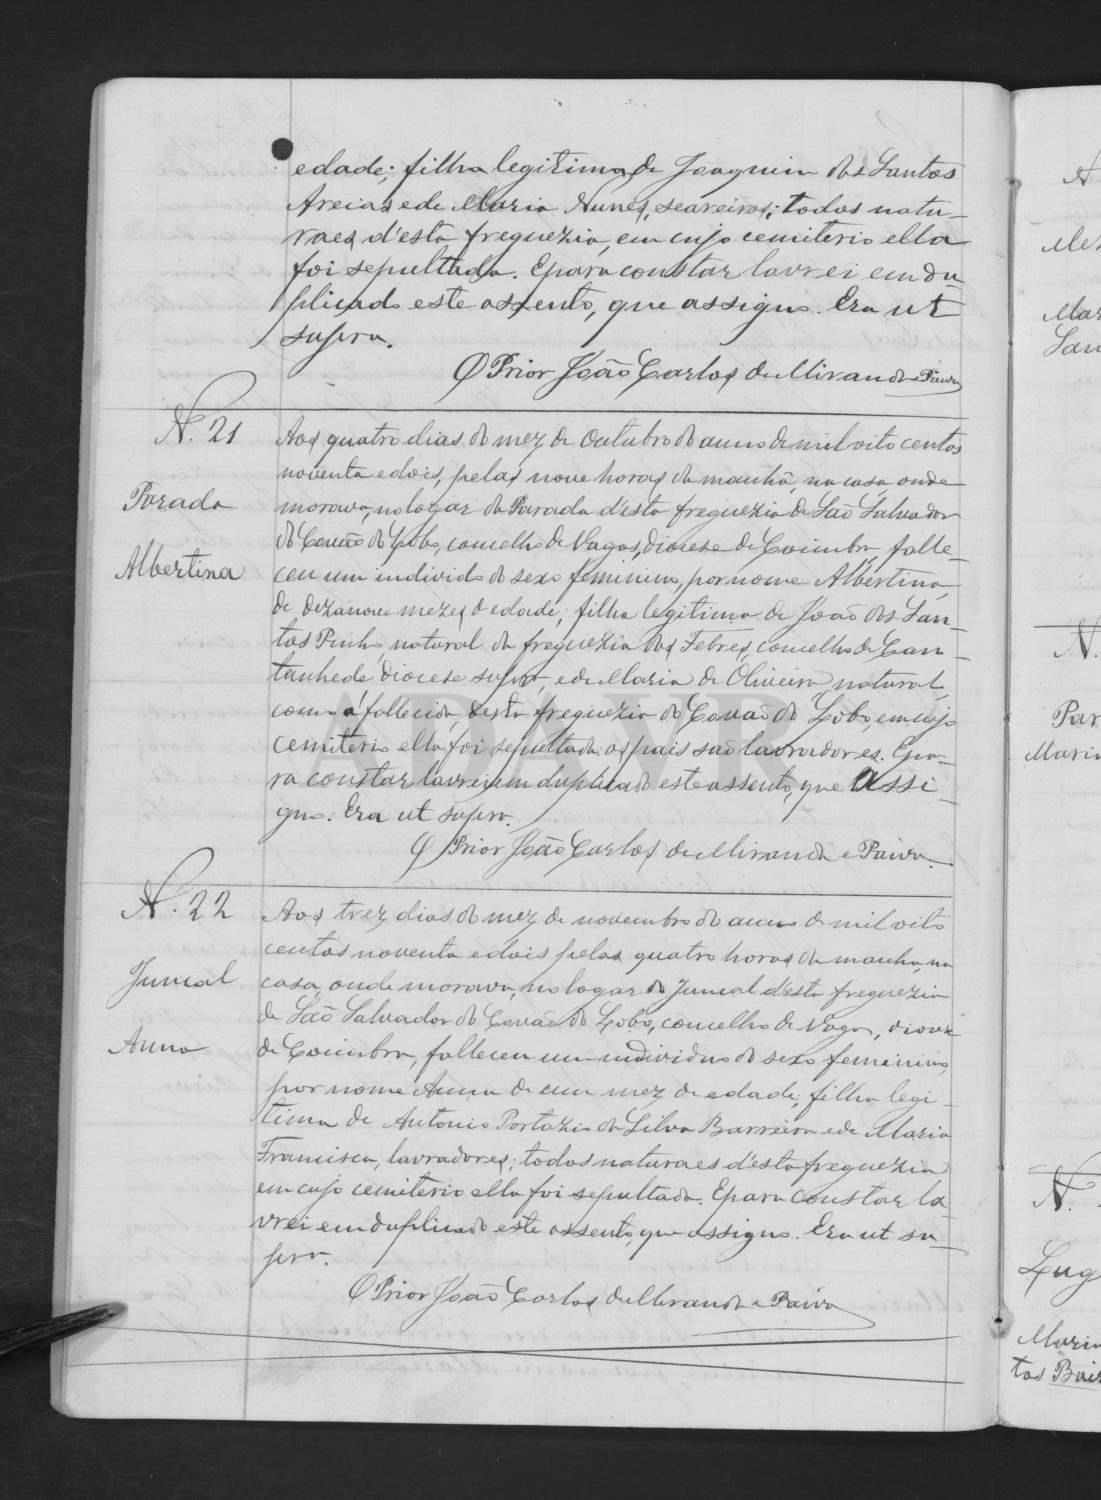 edade; filha legitima de Joaquim dos Santos
Areias e de Maria Nunes, seareiros; todos natu-
raes d'esta freguezia, em cujo cemiterio ella
foi sepultada. E para constar lavrei em du-
plicado este assento, que assigno. Era ut
supra.
O Prior João Carlos de Miranda e Paiva
N. 21
Parada
Albertina
Aos quatro dias do mez de Outubro do anno de mil oito centos
noventa e dois, pelas nove horas da manhã, na casa, onde
morava, no logar da Parada d'esta freguezia de São Salvador
do Covão do Lobo, concelho de Vagos, diocese de Coimbra, falle-
ceu um individo do sexo feminino, por nome Albertina,
de dezanove mezes de edade; filha legitima de João dos San-
tos Pinho, natural da freguezia das Febres, concelho de Can-
tanhede diocese supra, e de Maria de Oliveira, natural,
como a fallecida, desta freguezia do Covão do Lobo, em cujo
cemiterio ella foi sepultada: os pais são lavradores. E pa-
ra constar lavrei em duplicado este assento, que assi-
gno. Era ut supra.
O Prior João Carlos de Miranda e Paiva.
N. 22
Juncal
Anna
Aos trez dias do mez de novembro do anno de mil oito
centos noventa e dois pelas quatro horas da manha, na
casa, onde morava, no logar do Juncal d'esta freguezia
de São Salvador do Covão do Lobo, concelho de Vagos, diocese
de Coimbra, falleceu um individuo do sexo feminino,
por nome Anna de um mez de edade; filha legi-
tima de Antonio da Silva Barreira e de Maria
Francisca, lavradores; todos naturaes d'esta freguezia
em cujo cemiterio ella foi sepultada. E para constar la-
vrei em duplicado este assento, que assigno. Era ut su-
pra.
O Prior João Carlos de Miranda e Paiva
N.
Lug
Maria
tos